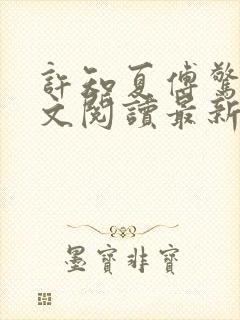 許知夏傅驚
文閱讀最新
墨寶非寶